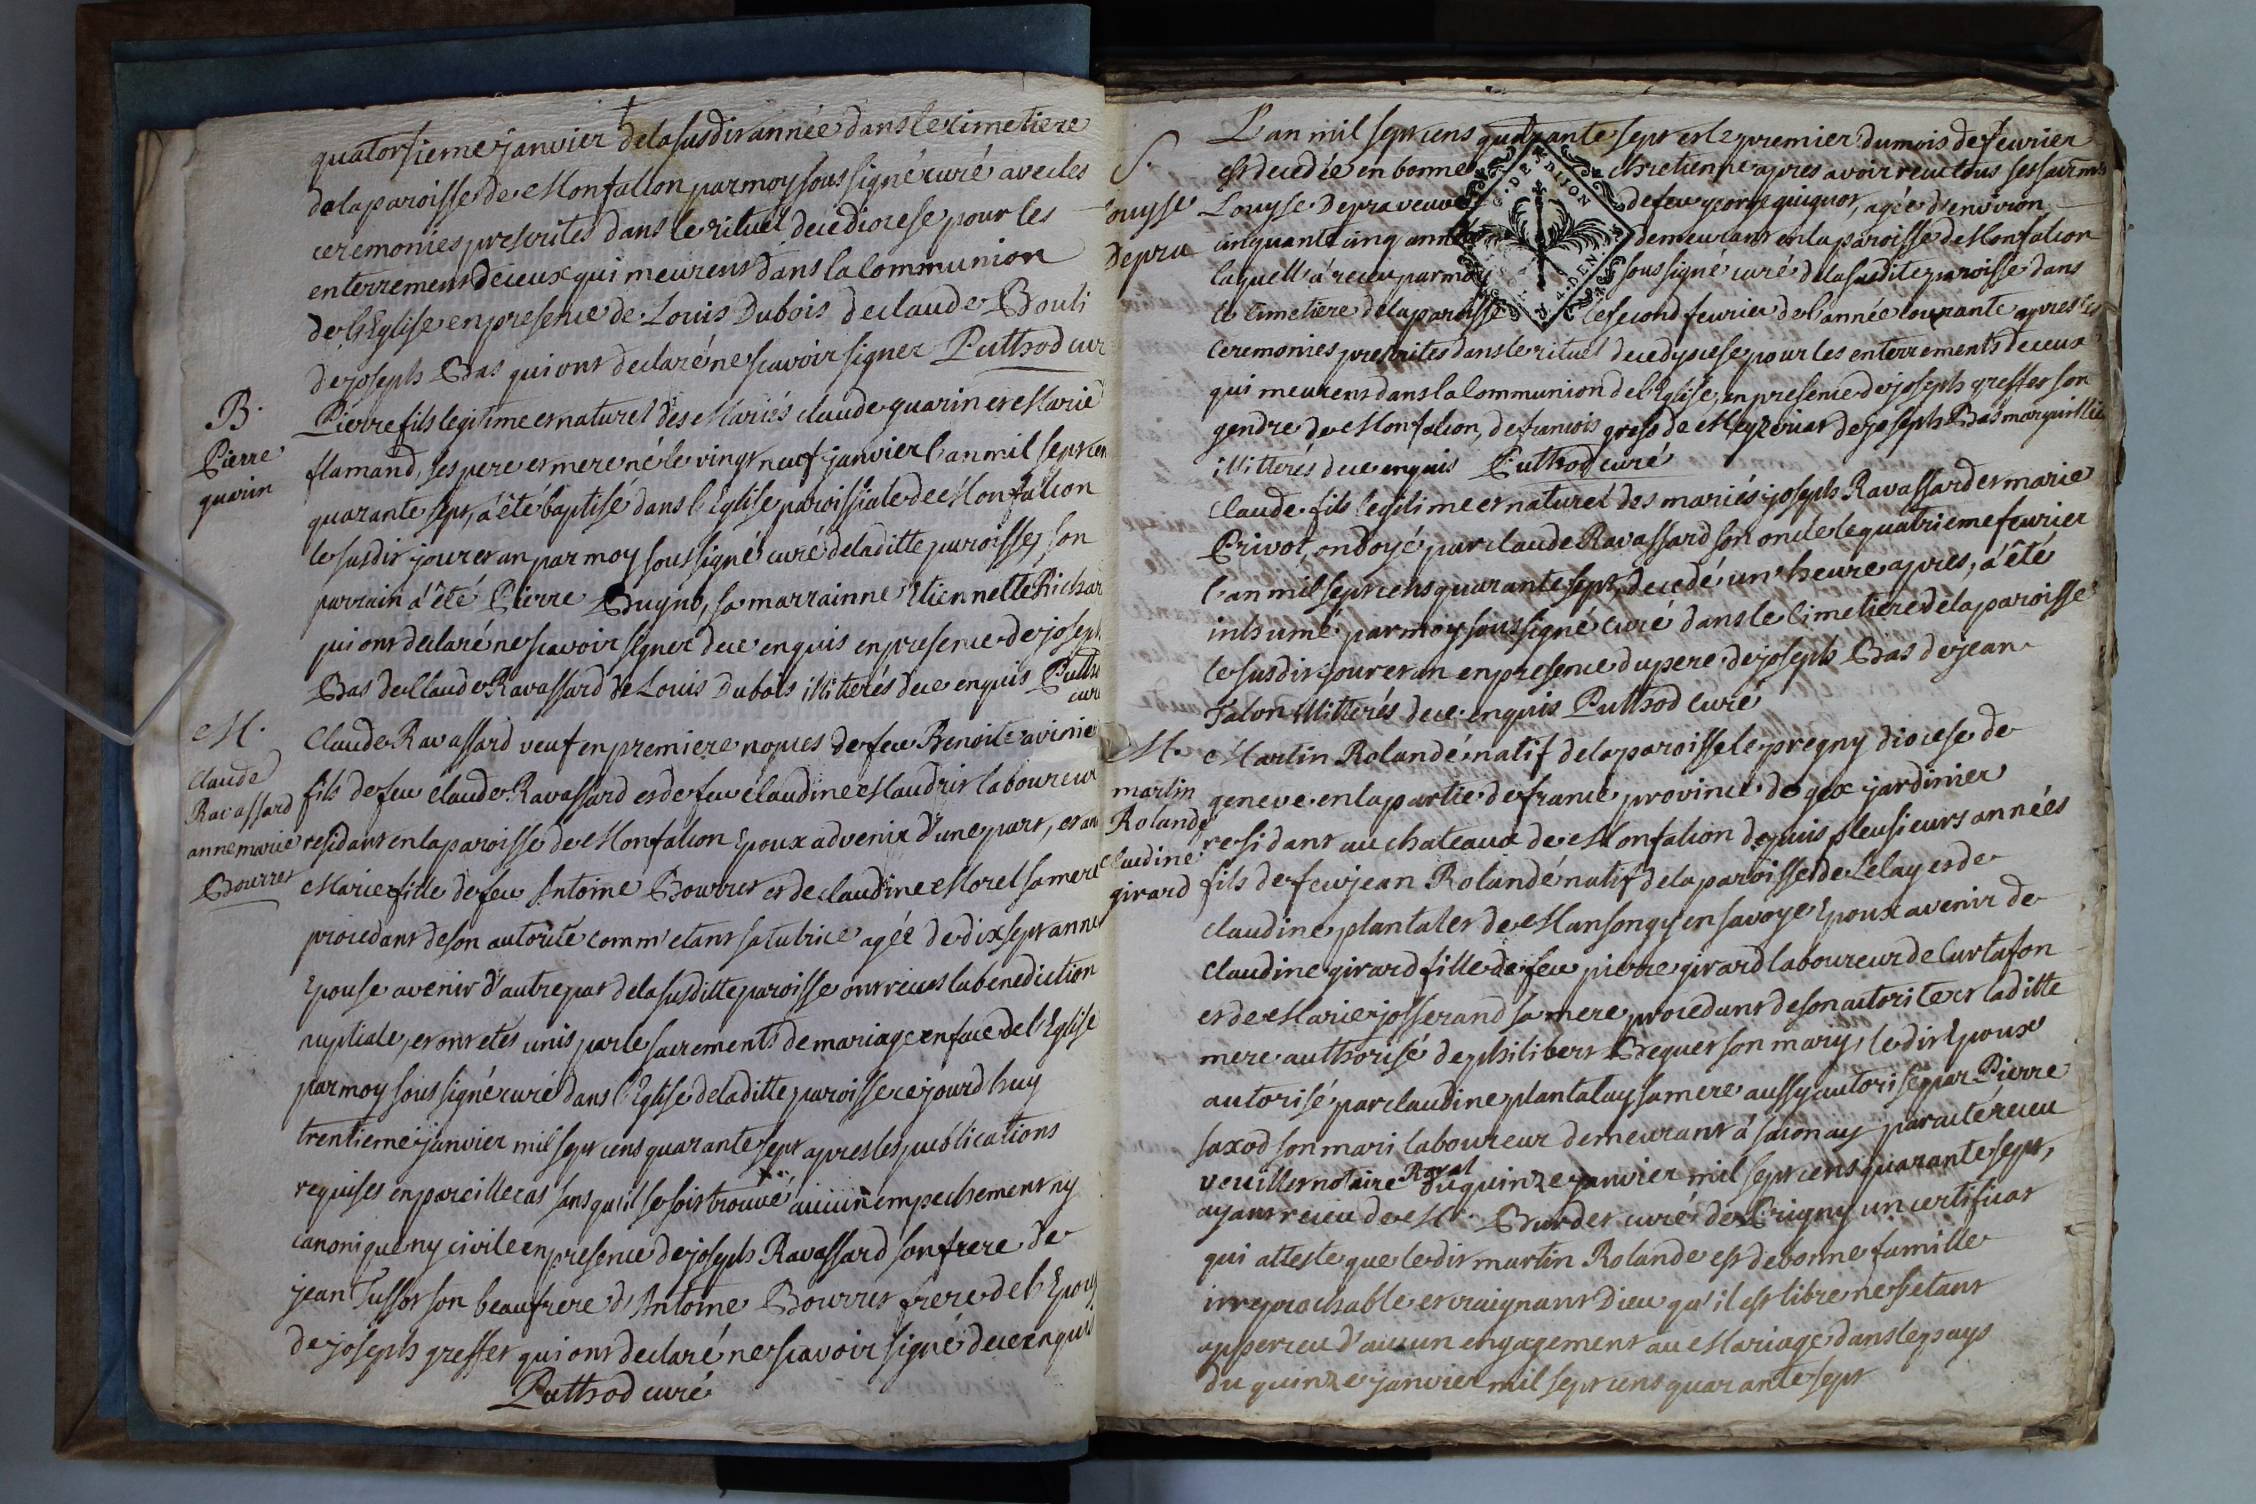 quatorsieme janvier de la susdit année dans le cimetiere
de la paroisse de Monfalcon par moy sous signé curé avec les
ceremonies prescrites dans le rituel de ce diocese pour les
enterrement de ceux qui meurent dans la Communion
de l'Eglise en presence de Louis Dubois de claude Bouli
de joseph Bas qui ont declaré ne scavoir signer Puthod cur
B.
Pierre
guarin
Pierre fils legitime et naturel des Mariés claude guarin et Marie
flamand, ses pere et mere né le vingt neuf janvier l'an mil sept cen
quarante sept, a été baptisé dans l'Eglise paroissiale de Monfalcon
le susdit jour et an par moy sous signé curé de laditte paroisse, son
parrain a été Pierre Bugnd, sa marrainne Etiennette Richar
qui ont declaré ne scavoir signer de ce enquis en presence de joseph
Bas de Claude Ravassard de Louis Dubois illiterés de ce enquis Putho
curé
M.
Claude
Ravassard
anne marie
Bourret
Claude Ravassard veuf en premiere nopces de feu Benoite avinie
fils de feu claude Ravassard et de feu claudine Maudrit laboureur
residant en la paroisse de Monfalcon Epoux advenir d'une part, et an
Marie fille de feu Antoine Bourret et de claudine Morel sa mere
procedant de son autorité comm'etant sa tutrice agée de dix sept année
Epouse avenir d'autre part de la susditte paroisse ont reçus la benediction
nuptiale, et ont etés unis par le sacrements de mariage en face de l'Eglise
par moy sous signé curé dans l'Eglise de laditte paroisse ce jourd huy
trentieme janvier mil sept cens quarante sept apres les publications
requises en pareille cas sans qu'il se soit trouvé aucun empechement ny
canonique ny civile en presence de joseph Ravassard son frere de
jean Tussot son beaufrere d'Antoine Bourret frere de l'Epous
de joseph greffet qui ont declaré ne scavoir signé de ce enquis
Puthod curé
S.
Louyse
depra
L'an mil sept cens quarante sept et le premier du mois de fevrier
est decedée en bonne chretienne apres avoir recu tous ses sacrmts
Louyse Depra veuve de feu guiguot, agée d'environ
cinquante cinq années demeurant en la paroisse de Monfalcon
laquell' a reçu par moy sous signé curé de la susdite paroisse dans
le Cimetiere de la paroisse le second fevrier de l'année courante apres les
Ceremonies prescrites dans le rituel de ce dyocese pour les enterrements de ceux
qui meurent dans la Communion de l'Eglise, en presence de joseph greffet son
gendre de Monfalcon, de francois gross de Mezeriat de joseph Bas marguillie
illitterés de ce enquis Puthod curé
DE DIJON
4 DEN
Claude fils legitime et naturel des mariés joseph Ravassard et marie
Privot, ondoyé par claude Ravassard son oncle le quatrieme fevrier
l'an mil sept cens quarante sept, decedé un' heure apres, a été
inhumé par moy sous signé Curé dans le Cimetiere de la paroisse
le susdit jour et an en presence du pere de joseph Bas de jean
Falon illitterés de ce enquis Puthod Curé
M.
martin
Rolandé
claudine
girard
Martin Rolandé natif de la paroisse le pregny diocese de
geneve en la partie de france province de gex jardinier
residant au chateaux de Monfalcon depuis pleusieurs années
fils de feu jean Rolandé natif de la paroisse de Lelay et de
claudine plantales de Mansongy en savoye Epoux avenir de
Claudine girard fille de feu pierre girard laboureur de Curtafon
et de Marie josserand sa mere procedant de son autorité et laditte
mere authorisé de philibert Brequet son mary, ledit Epoux
autorisé par claudine plantalay sa mere aussy autorisé par Pierre
saxod son mari laboureur demeurant à saconay par acte recu
veuillet notaire Royal du quinze janvier mil sept cens quarante sept,
ayant recu de Mr. Burdet curé de Prigny un certificat
qui atteste que ledit martin Rolande est de bonne famille
irreprochable et craignant Dieu qu'il est libre ne s'etant
apperceu d'aucun engagement au Mariage dans le pays
du quinze janvier mil sept cens quarante sept